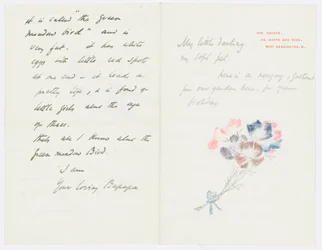 it is called "the Green
meadow bird" and is
very fat. it has white
eggs with little red spots
at one end - it leads a
pretty life, & is fond of
little girls about the age
of three.
thats all I know about the
Green meadow Bird.
I am
Your loving Bapapa
THE GRANGE,
49, NORTH END ROAD,
WEST KENSINGTON, W.
My little darling
my
here is a nosegay, gathered
from our garden here, for your